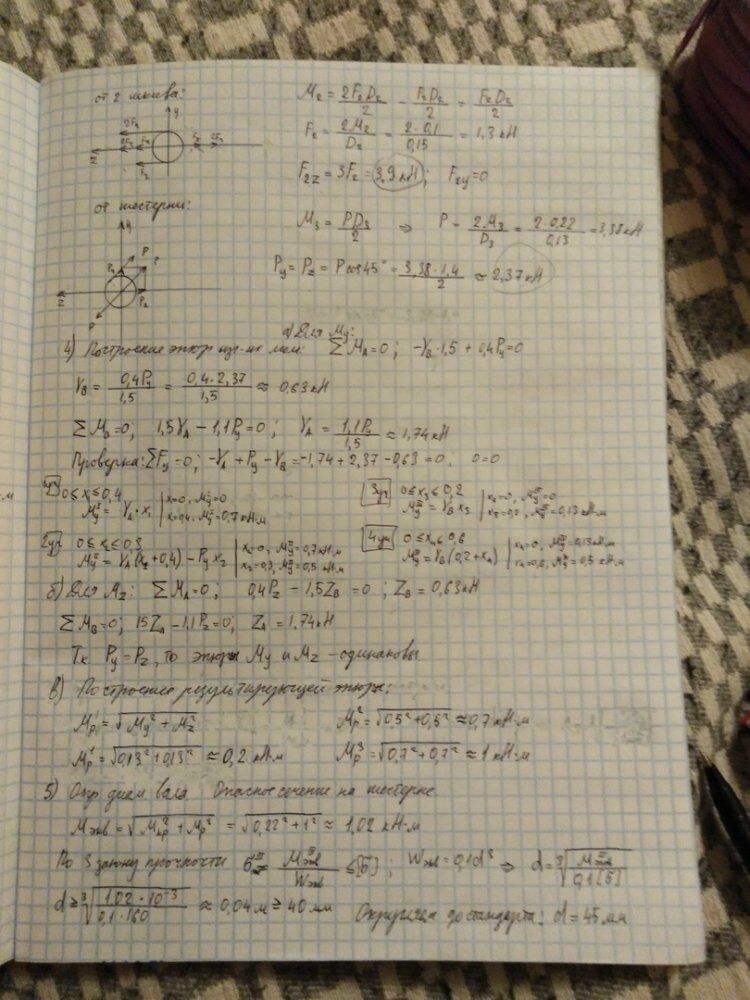 от 2 шкива:
M₂ = 2F₂D₂/2 - F₂D₂/2 = F₂D₂/2
F₂ = 2M₂/D₂ = 2·0,1/0,15 = 1,3 кН
F₂z = 3F₂ = 3,9 кН; F₂y = 0
от шестерни:
M₃ = PD₃/2 ⇒ P = 2M₃/D₃ = 2·0,22/0,13 = 3,38 кН
Py = Pz = P cos45° = 3,38·1,4/2 ≈ 2,37 кН
4) Построение эпюр изг-их мом: а) Для My: ΣM_A=0; -Y_B·1,5 + 0,4Py=0
Y_B = 0,4Py/1,5 = 0,4·2,37/1,5 ≈ 0,63 кН
ΣM_B=0; 1,5Y_A - 1,1Py=0; Y_A = 1,1Py/1,5 ≈ 1,74 кН
Проверка: ΣFy=0; -Y_A + Py - Y_B = -1,74 + 2,37 - 0,63 = 0, 0=0
1уч 0≤x₁≤0,4
My^I = Y_A·x₁ | x=0, My^I=0
x=0,4, My^I=0,7 кН·м
3уч 0≤x₃≤0,2
My^III = Y_B x₃ | x₃=0, My^III=0
x₃=0,2, My^III=0,13 кН·м
2уч 0≤x₂≤0,3
My^II = Y_A(x₂+0,4) - Py x₂ | x₂=0, My^II=0,7 кН·м
x₂=0,3, My^II=0,5 кН·м
4уч 0≤x₄≤0,6
My^IV = Y_B(0,2+x₄) | x₄=0, My^IV=0,13 кН·м
x₄=0,6, My^IV=0,5 кН·м
б) Для Mz: ΣM_A=0; 0,4Pz - 1,5Z_B = 0; Z_B = 0,63 кН
ΣM_B=0; 1,5Z_A - 1,1Pz=0; Z_A = 1,74 кН
Тк Py=Pz, то эпюры My и Mz - одинаковы
в) Построение результирующей эпюры:
Mp = √(My² + Mz²)
Mp² = √(0,5²+0,5²) ≈ 0,7 кН·м
Mp¹ = √(0,13²+0,13²) ≈ 0,2 кН·м
Mp³ = √(0,7²+0,7²) ≈ 1 кН·м
5) Опр диам вала. Опасное сечение на шестерне.
Mэкв = √(Mкр² + Mp²) = √(0,22²+1²) ≈ 1,02 кН·м
По 3 закону прочности б^III = Mэкв^III/Wэкв ≤ [б]; Wэкв = 0,1d³ ⇒ d = ³√(Mэкв^III/0,1[б])
d ≥ ³√(1,02·10⁻³/0,1·160) ≈ 0,04 м ≥ 40 мм Округляем до стандарта: d = 45 мм